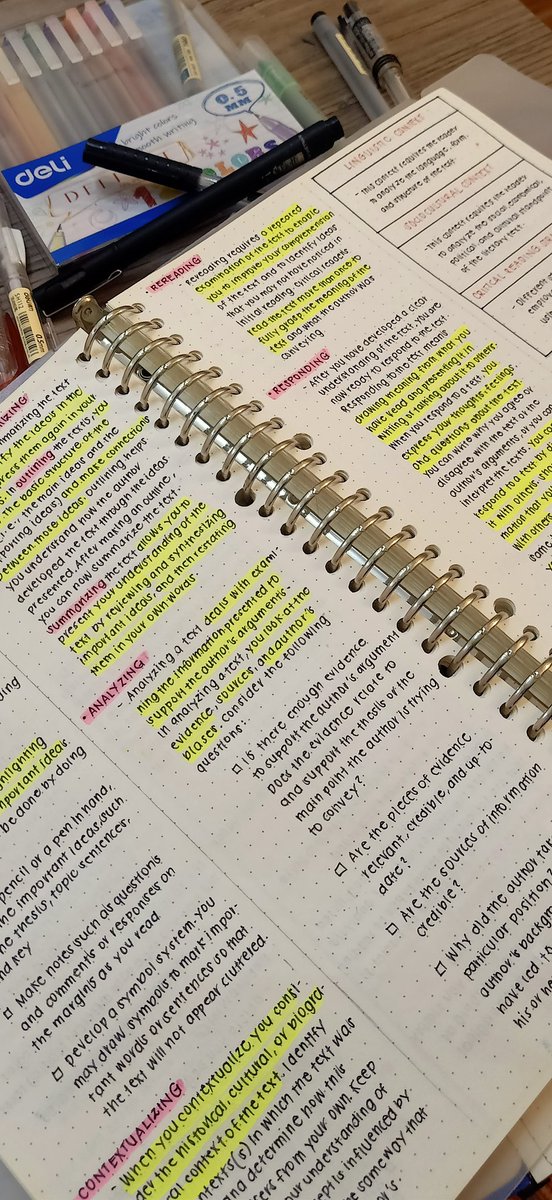 deli
bright colors
smooth writing
0.5
MM
COLORS
deli
0.5
LINGUISTIC CONTEXT
- This context requires the reader
to analyze the language, form,
and structure of the text.
SOCIOCULTURAL CONTEXT
- This context requires the reader
to analyze the social, economical,
political, and cultural
of the literary text.
CRITICAL READING
• REREADING
- rereading requires a repeated
examination of the text to enable
you to improve your comprehension
of the text and to identify ideas
that you may not have noticed in
initial reading. Critical readers
read the text more than once to
fully grasp the meaning of the
text and what the author was
conveying
• RESPONDING
- After you have developed a clear
understanding of the text, you are
now ready to respond to the text.
Responding to the text means
drawing meaning from what you
have read and presenting it in
writing or talking about it to others.
When you respond to a text, you
express your thoughts, feelings
and questions about the text.
You can write why you agree or
disagree with the text or the
author's arguments, or how you
interpret the texts. You can
respond to a text by
with others
mation that
with other
summarizing the text
the ideas in the
them again in your
in outlining the texts, you
the basic structure of the
the main ideas and the
supporting ideas) and make connections
between those ideas. Outlining helps
you understand how the author
developed the text through the ideas
presented. After making an outline,
you can now summarize the text.
Summarizing the text allows you to
present your understanding of the
text by reviewing and synthesizing
important ideas and then restating
them in your own words
• ANALYZING
- Analyzing a text deals with exami-
ning the information presented to
support the author's arguments
in analyzing a text, you look at the
evidence, sources, and author's
biases. Consider the following
questions:
□ Is there enough evidence
to support the author's argument
Does the evidence relate to
and support the thesis or the
main point the author is trying
to convey?
□ Are the pieces of evidence
relevant, credible, and up-to
date?
□ Are the sources of information
credible?
□ Why did the author take
particular position?
author's
have led
his or
highlighting
important ideas
be done by doing
pencil or a pen in hand,
the important ideas, such
the thesis, topic sentences,
and key
□ Make notes such as questions
and comments or responses on
the margins as you read
□ Develop a symbol system. You
may draw symbols to mark impor-
tant words or sentences so that
the text will not appear cluttered.
CONTEXTUALIZING
- When you contextualize, you consi-
der the historical, cultural, or biogra
context of the text. Identify
in which the text was
and determine how this
from your own. Keep
understanding of
is influenced by
same way that